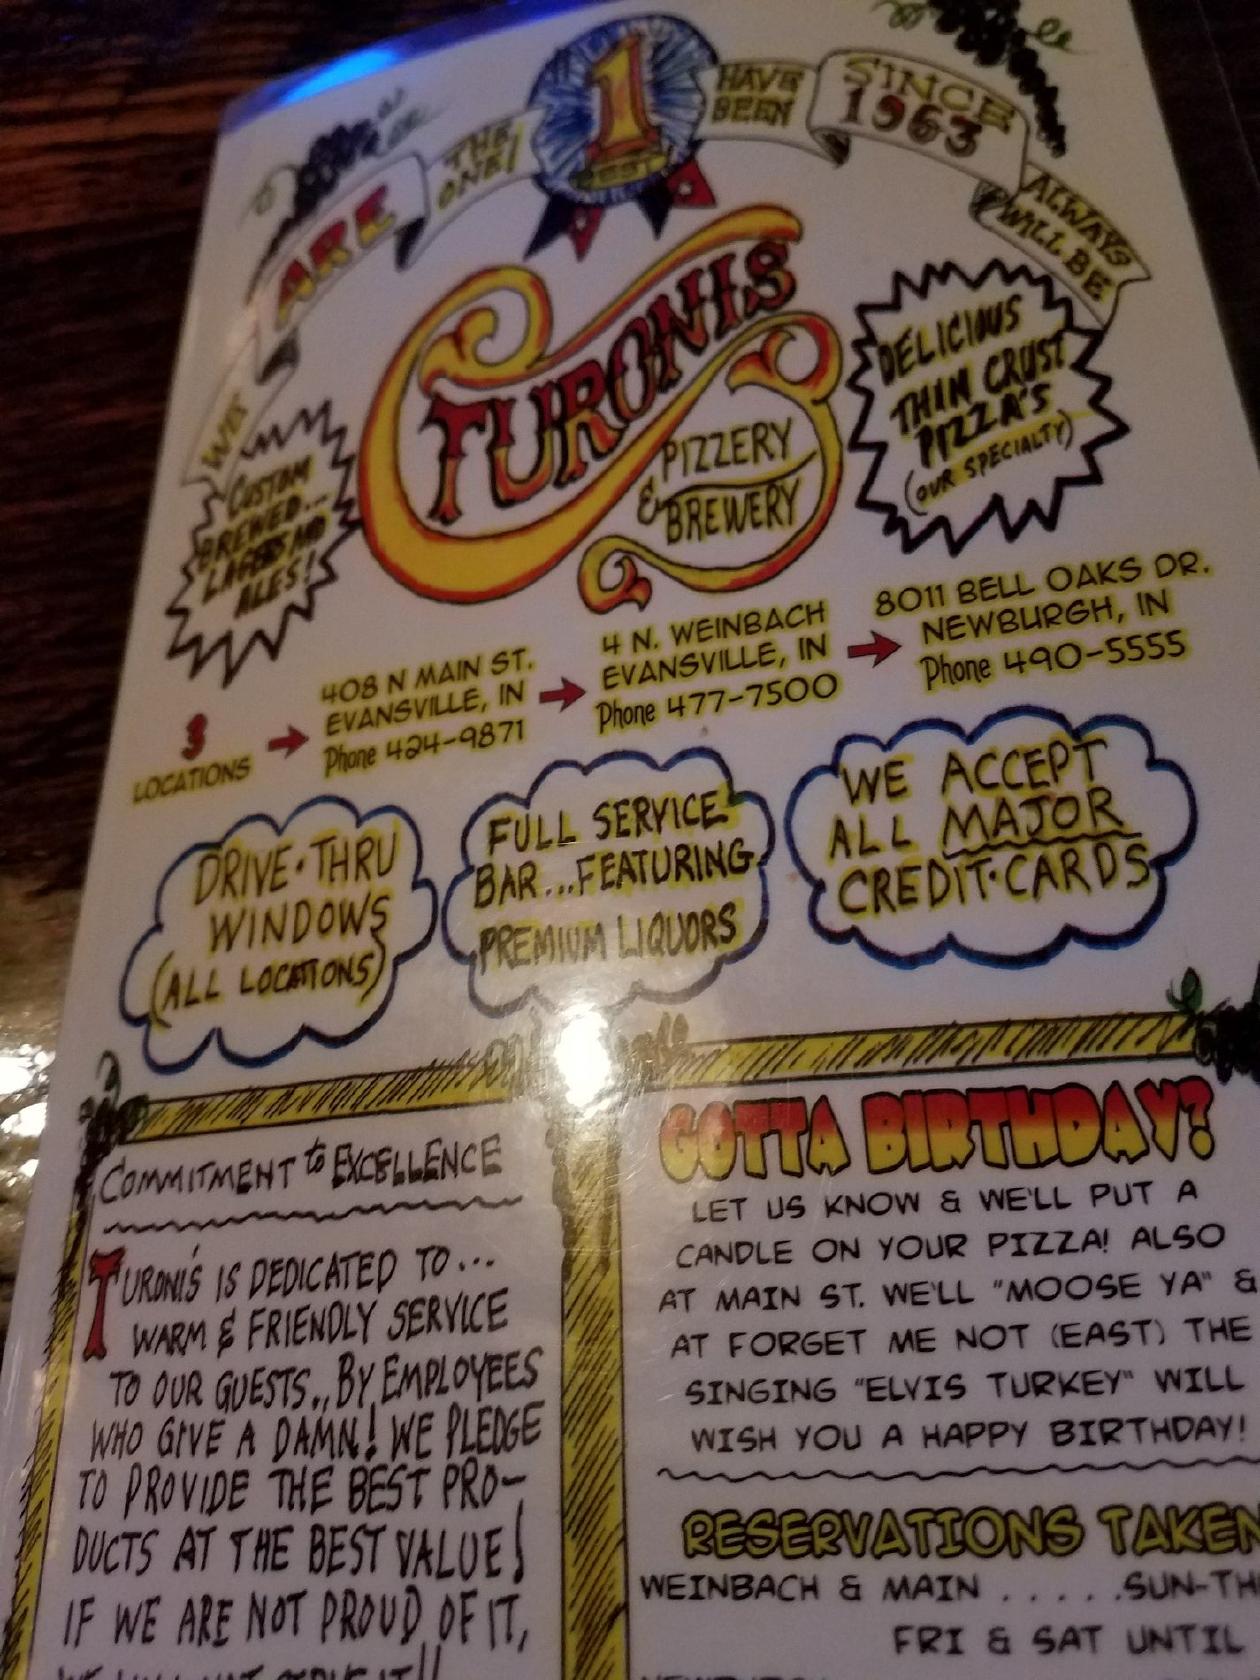 WE
ARE
THE
ONE!
1
BEST
HAVE
BEEN
SINCE
1963
ALWAYS
WILL BE
TURONIS
PIZZERY
& BREWERY
CUSTOM
BREWED...
LAGERS AND
ALES!
DELICIOUS
THIN CRUST
PIZZA'S
(OUR SPECIALTY)
3
LOCATIONS
408 N MAIN ST.
EVANSVILLE, IN
Phone 424-9871
4 N. WEINBACH
EVANSVILLE, IN
Phone 477-7500
8011 BELL OAKS DR.
NEWBURGH, IN
Phone 490-5555
DRIVE-THRU
WINDOWS
(ALL LOCATIONS)
FULL SERVICE
BAR...FEATURING
PREMIUM LIQUORS
WE ACCEPT
ALL MAJOR
CREDIT-CARDS
COMMITMENT to EXCELLENCE
TURONI'S IS DEDICATED TO...
WARM & FRIENDLY SERVICE
TO OUR GUESTS.. BY EMPLOYEES
WHO GIVE A DAMN! WE PLEDGE
TO PROVIDE THE BEST PRO-
DUCTS AT THE BEST VALUE!
IF WE ARE NOT PROUD OF IT,
GOTTA BIRTHDAY?
LET US KNOW & WE'LL PUT A
CANDLE ON YOUR PIZZA! ALSO
AT MAIN ST. WE'LL "MOOSE YA" &
AT FORGET ME NOT (EAST) THE
SINGING "ELVIS TURKEY" WILL
WISH YOU A HAPPY BIRTHDAY!
RESERVATIONS TAKEN
WEINBACH & MAIN . . . . . .SUN-TH
FRI & SAT UNTIL